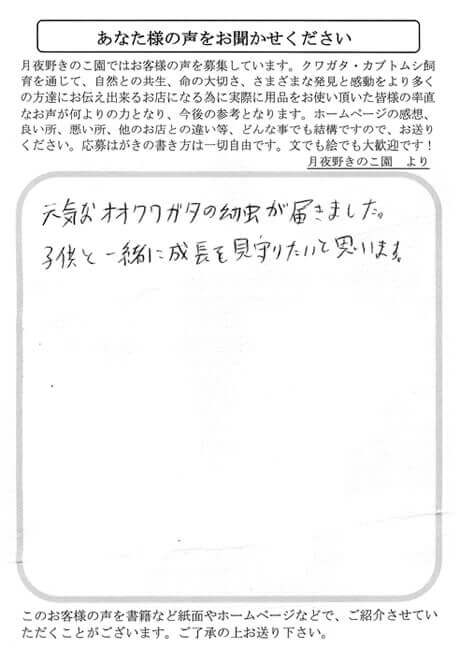 あなた様の声をお聞かせください
月夜野きのこ園ではお客様の声を募集しています。クワガタ・カブトムシ飼
育を通じて、自然との共生、命の大切さ、さまざまな発見と感動をより多く
の方達にお伝え出来るお店になる為に実際に用品をお使い頂いた皆様の率直
なお声が何よりの力となり、今後の参考となります。ホームページの感想、
良い所、悪い所、他のお店との違い等、どんな事でも結構ですので、お送り
ください。応募はがきの書き方は一切自由です。文でも絵でも大歓迎です！
月夜野きのこ園　より
元気なオオクワガタの幼虫が届きました。
子供と一緒に成長を見守りたいと思います。
このお客様の声を書籍など紙面やホームページなどで、ご紹介させてい
ただくことがございます。ご了承の上お送り下さい。